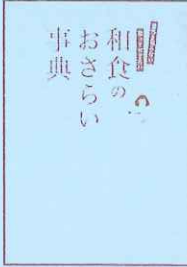 和食の
おさらい
事典